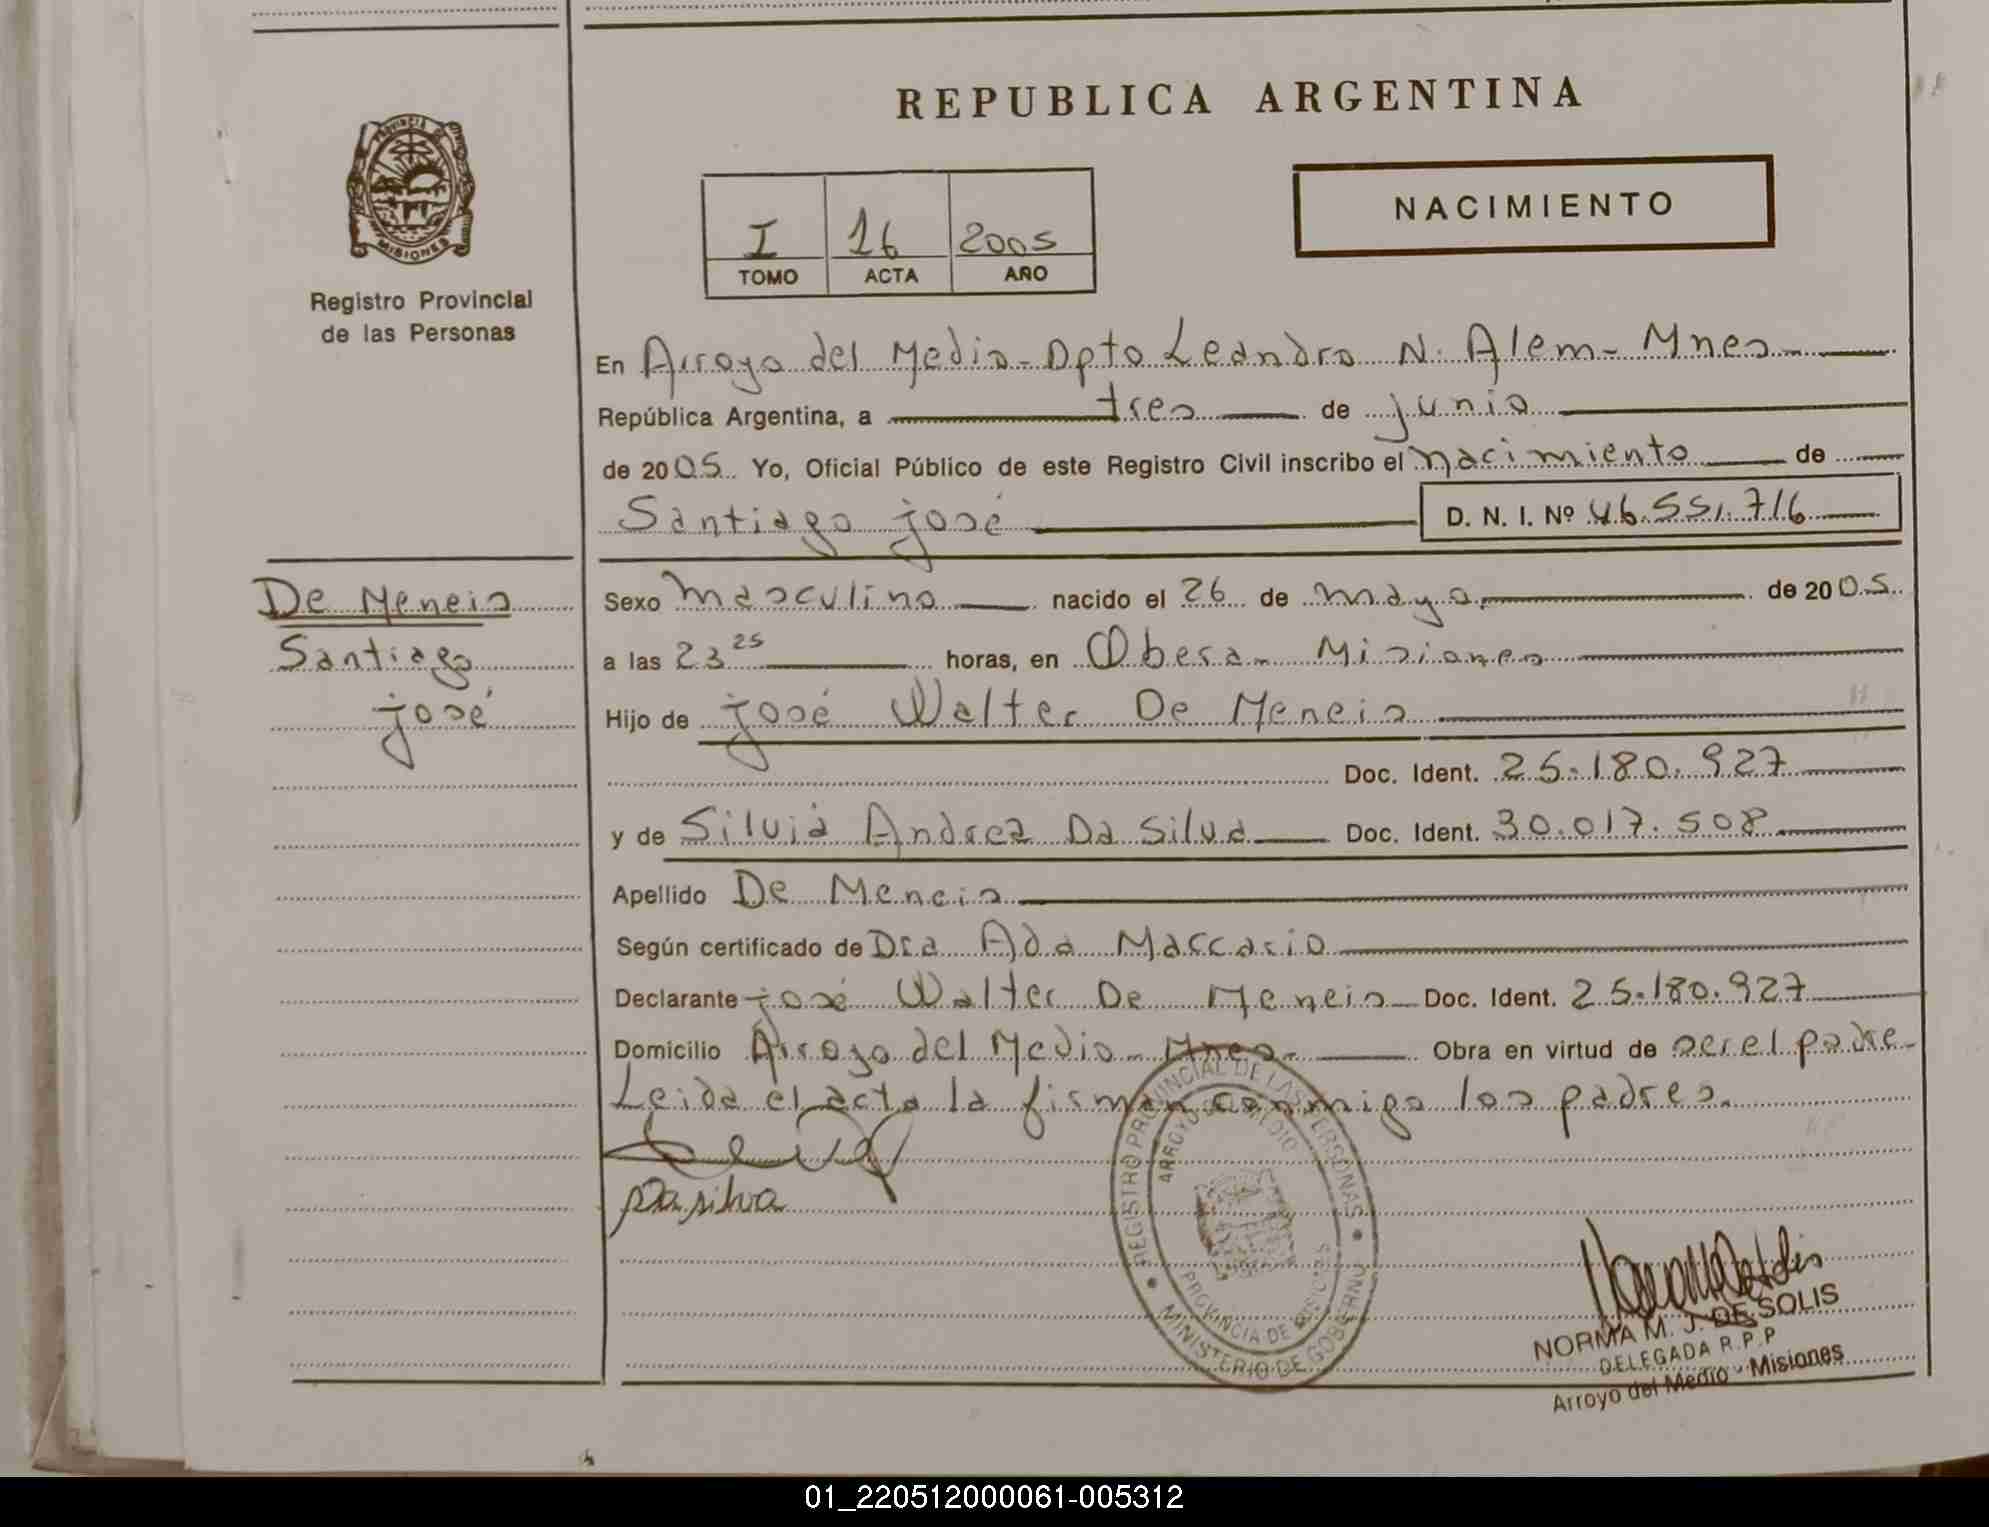 REPUBLICA ARGENTINA
PROVINCIA DE
MISIONES
Registro Provincial
de las Personas
I 16 2005
TOMO ACTA AÑO
NACIMIENTO
En Arroyo del Medio - Dpto Leandro N. Alem - Mnes
República Argentina, a tres de junio
de 2005 Yo, Oficial Público de este Registro Civil inscribo el nacimiento de
Santiago josé D. N. I. Nº 46.551.716
De Meneis
Santiago
josé
Sexo masculino nacido el 26 de mayo de 2005
a las 23 25 horas, en Obera - Misiones
Hijo de josé Walter De Meneis
Doc. Ident. 25.180.927
y de Silvia Andrea Da Silva Doc. Ident. 30.017.508
Apellido De Meneis
Según certificado de Dra Ada Maccario
Declarante josé Walter De Meneis Doc. Ident. 25.180.927
Domicilio Arroyo del Medio - Mnes - Obra en virtud de ser el padre -
Leida el acta la firman conmigo los padres.
Da silva
REGISTRO PROVINCIAL DE LAS PERSONAS
ARROYO DEL MEDIO
PROVINCIA DE MISIONES
MINISTERIO DE GOBIERNO
NORMA M. J. DE SOLIS
DELEGADA R.P.P
Arroyo del Medio - Misiones
01_220512000061-005312